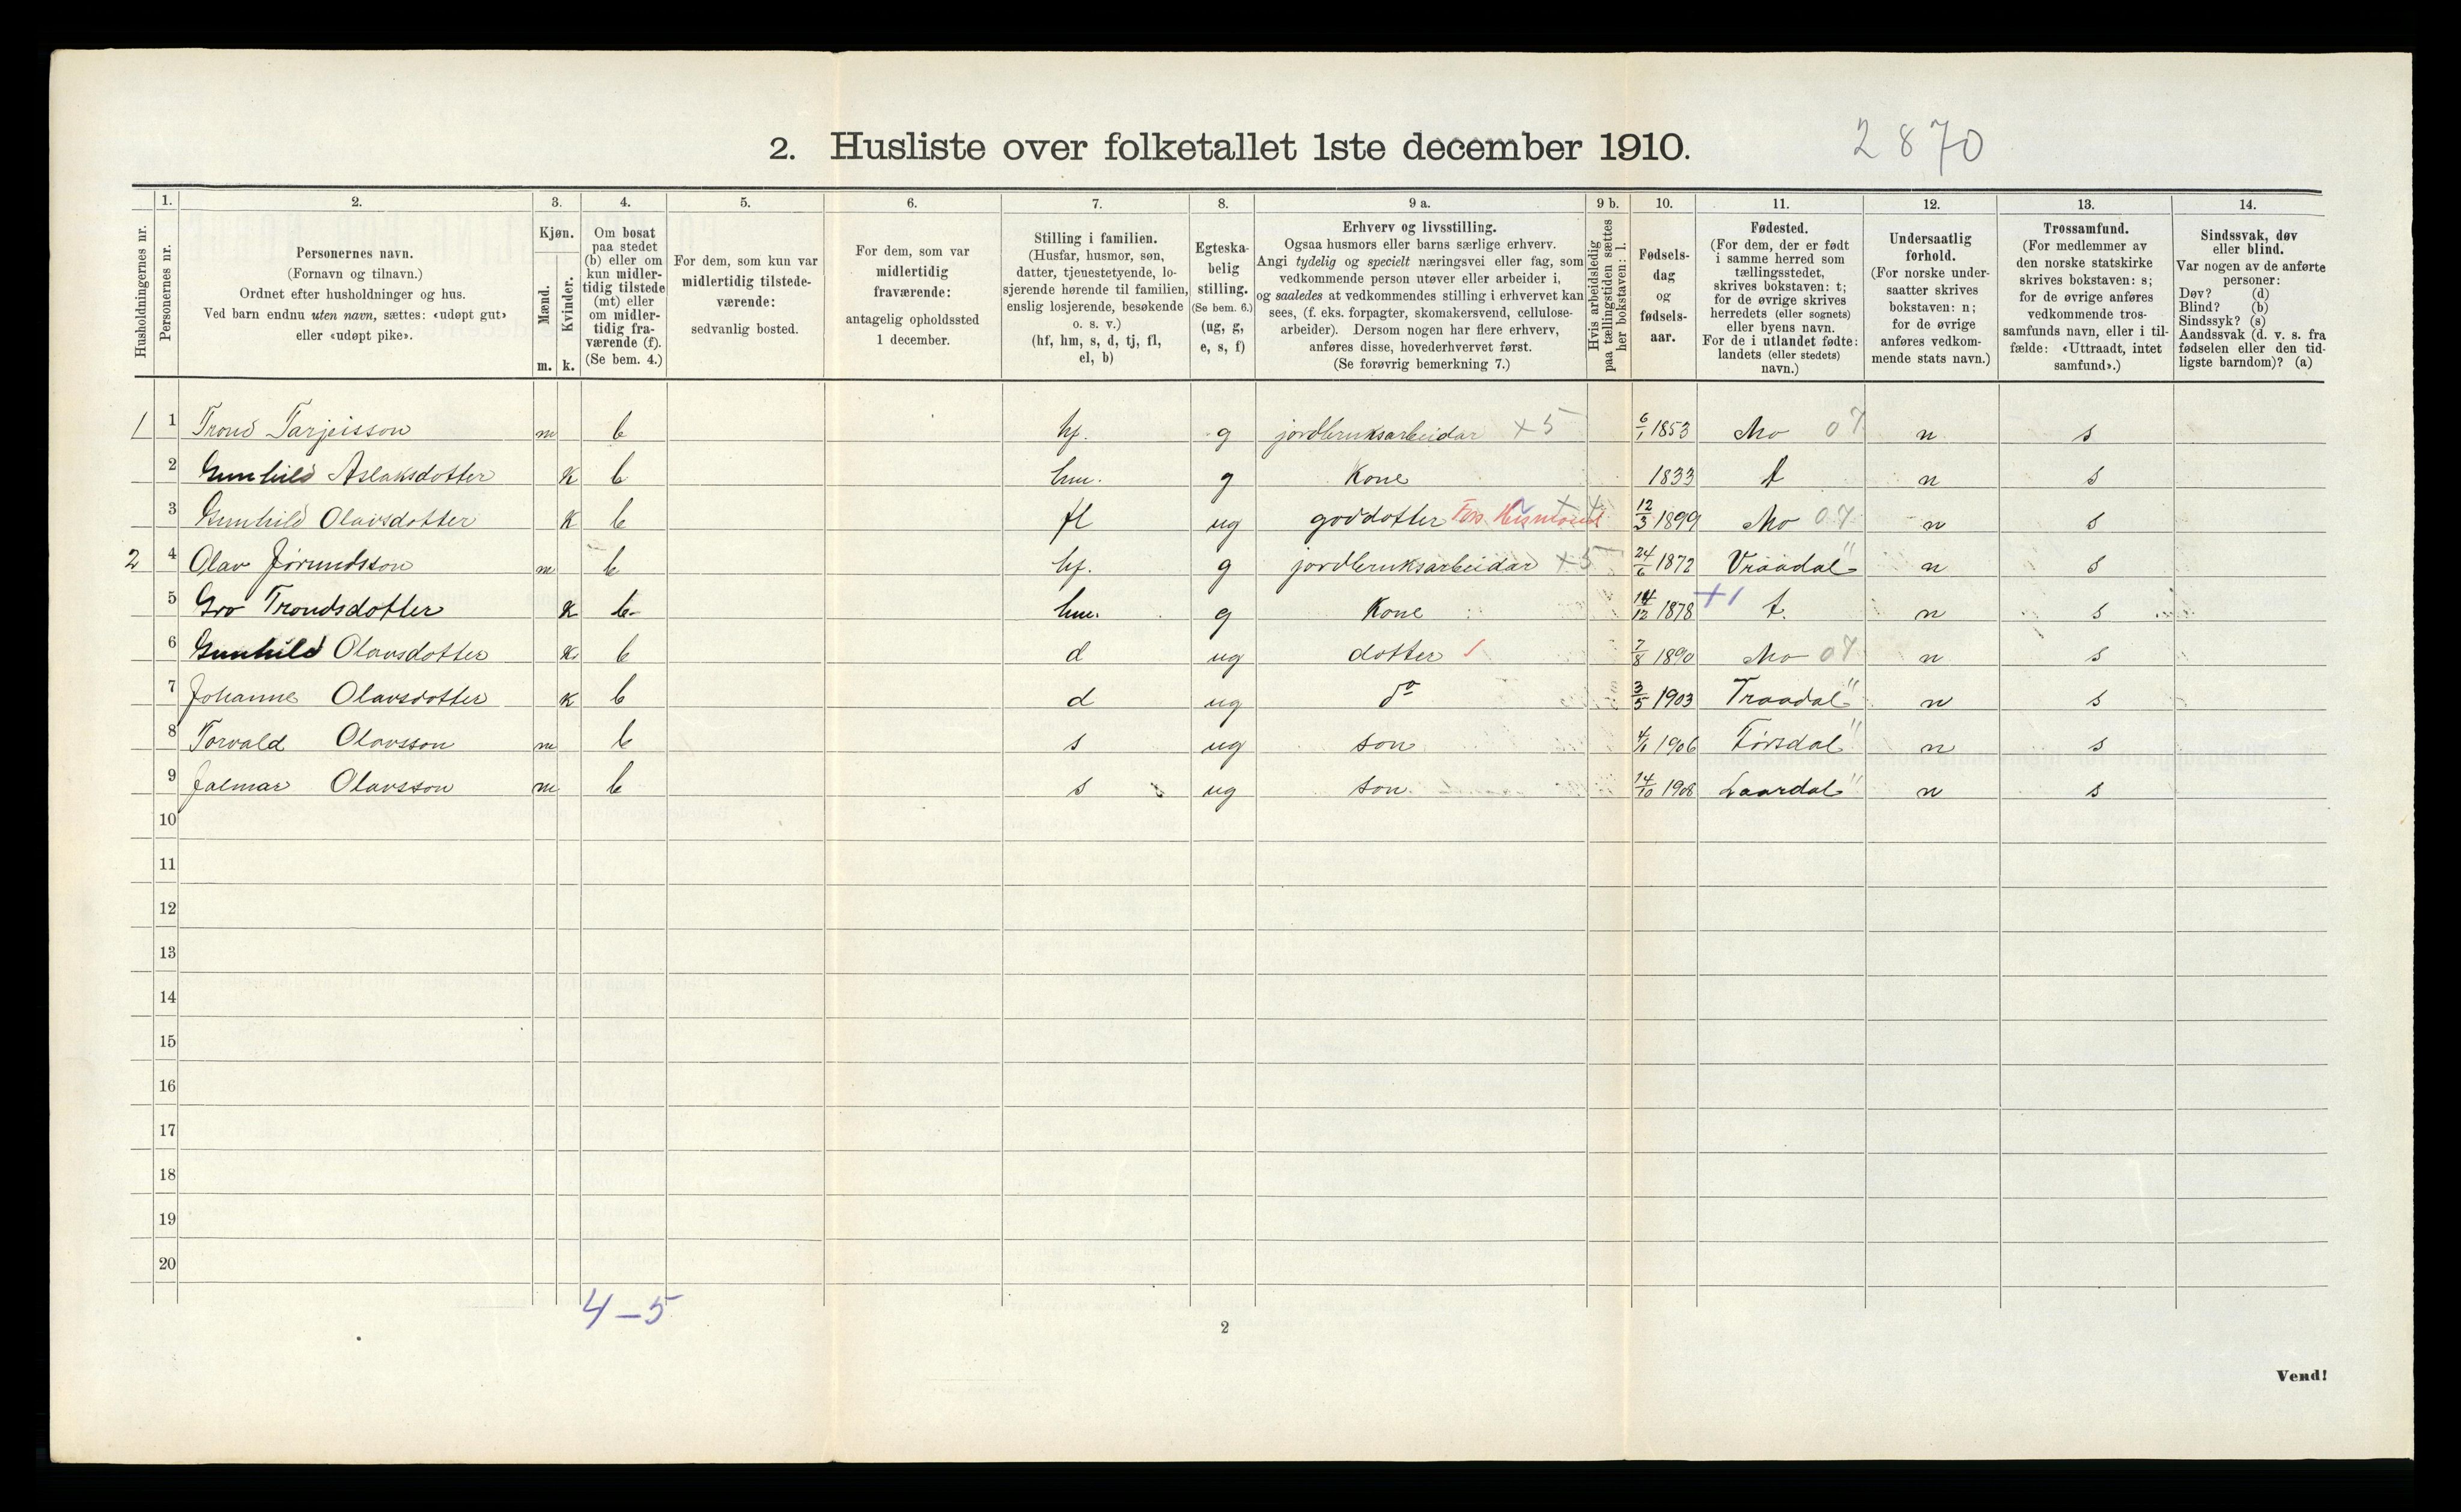 2. Husliste over folketallet 1ste december 1910.
2870
1. 2. 3. 4. 5. 6. 7. 8. 9 a. 9 b. 10. 11. 12. 13. 14.
Husholdningernes nr.
Personernes nr.
Personernes navn.
(Fornavn og tilnavn.)
Ordnet efter husholdninger og hus.
Ved barn endnu uten navn, sættes: «udøpt gut»
eller «udøpt pike».
Kjøn.
Mænd.
Kvinder.
m. k.
Om bosat
paa stedet
(b) eller om
kun midler-
tidig tilstede
(mt) eller
om midler-
tidig fra-
værende (f).
(Se bem. 4.)
For dem, som kun var
midlertidig tilstede-
værende:
sedvanlig bosted.
For dem, som var
midlertidig
fraværende:
antagelig opholdssted
1 december.
Stilling i familien.
(Husfar, husmor, søn,
datter, tjenestetyende, lo-
sjerende hørende til familien,
enslig losjerende, besøkende
o. s. v.)
(hf, hm, s, d, tj, fl,
el, b)
Egteska-
belig
stilling.
(Se bem. 6.)
(ug, g,
e, s, f)
Erhverv og livsstilling.
Ogsaa husmors eller barns særlige erhverv.
Angi tydelig og specielt næringsvei eller fag, som
vedkommende person utøver eller arbeider i,
og saaledes at vedkommendes stilling i erhvervet kan
sees, (f. eks. forpagter, skomakersvend, cellulose-
arbeider). Dersom nogen har flere erhverv,
anføres disse, hovederhvervet først.
(Se forøvrig bemerkning 7.)
Hvis arbeidsledig
paa tællingstiden sættes
her bokstaven: l.
Fødsels-
dag
og
fødsels-
aar.
Fødested.
(For dem, der er født
i samme herred som
tællingsstedet,
skrives bokstaven: t;
for de øvrige skrives
herredets (eller sognets)
eller byens navn.
For de i utlandet fødte:
landets (eller stedets)
navn.)
Undersaatlig
forhold.
(For norske under-
saatter skrives
bokstaven: n;
for de øvrige
anføres vedkom-
mende stats navn.)
Trossamfund.
(For medlemmer av
den norske statskirke
skrives bokstaven: s;
for de øvrige anføres
vedkommende tros-
samfunds navn, eller i til-
fælde: «Uttraadt, intet
samfund».)
Sindssvak, døv
eller blind.
Var nogen av de anførte
personer:
Døv? (d)
Blind? (b)
Sindssyk? (s)
Aandssvak (d. v. s. fra
fødselen eller den tid-
ligste barndom)? (a)
1 1 Trond Tarjeisson m b hf. g jordbruksarbeidar +5 6/1 1853 Mo 07 n s
2 Gunhild Aslaksdotter k b hm. g Kone 1833 t n s
3 Gunhild Olavsdotter k b fl ug goddotter 12/3 1899 Mo 07 n s
2 4 Olav Jørundsson m b hf. g jordbruksarbeidar +5 24/6 1872 Vraadal " n s
5 Gro Trondsdotter k b hm. g Kone 14/12 1878 +1 t. n s
6 Gunhild Olavsdotter k b d ug dotter 7/8 1890 Mo 07 n s
7 Johanne Olavsdotter k b d ug do 3/5 1903 Traadal " n s
8 Torvald Olavsson m b s ug son 1906 Førsdal " n s
9 Jalmar Olavsson m b s ug son 14/10 1908 Laardal " n s
10
11
12
13
14
15
16
17
18
19
20
4-5
2
Vend!